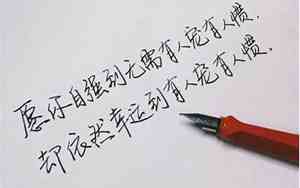 愿你自强到无需有人宠有人惯.
却依然幸运到有人宠有人惯.